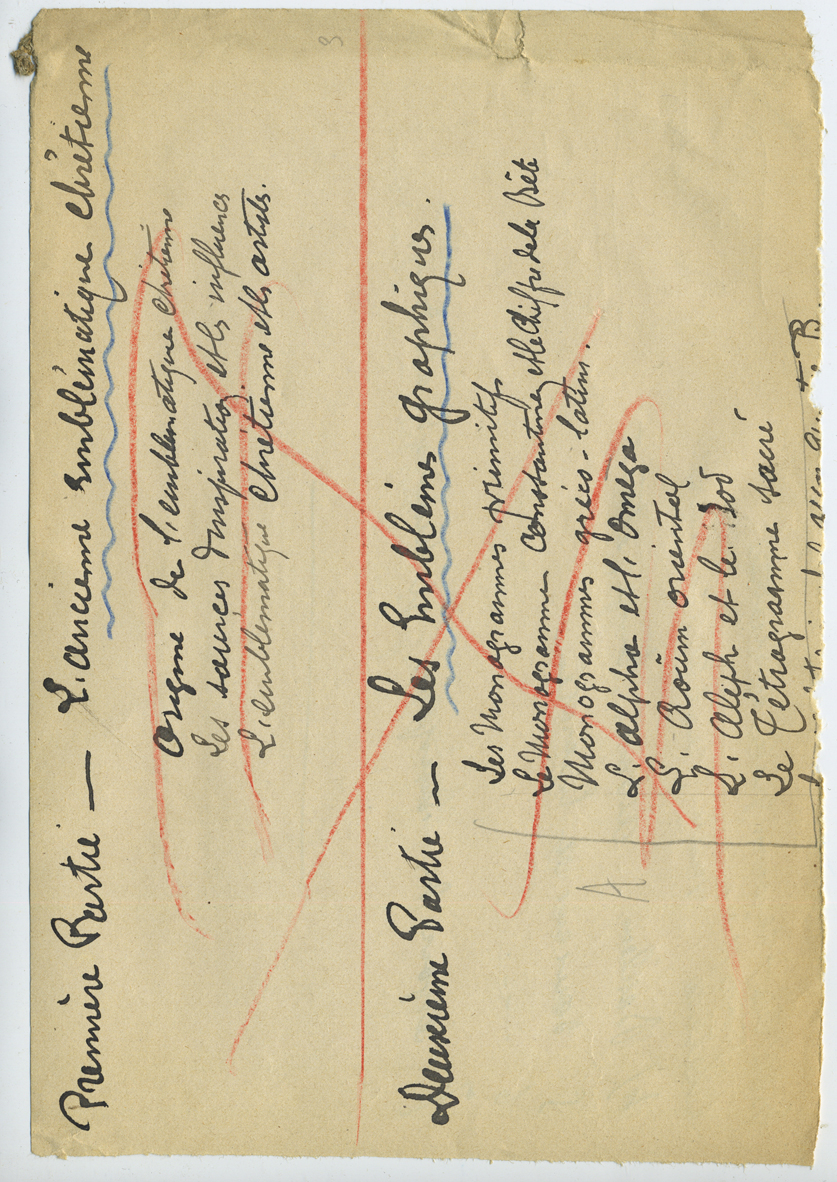 Première Partie — L'ancienne emblématique chrétienne
Origine de l'emblématique chrétienne
Les sources d'inspiration et les influences
L'emblématique chrétienne et les artistes.
Deuxième Partie — Les Emblèmes graphiques.
Les Monogrammes primitifs
Le Monogramme constantinien et le Chiffre de la Bête
Monogrammes grecs-latins.
L'alpha et l'Omega
L'Aoûm oriental
L'Aleph et le Iod
Le Tétragramme sacré
A
B.
3